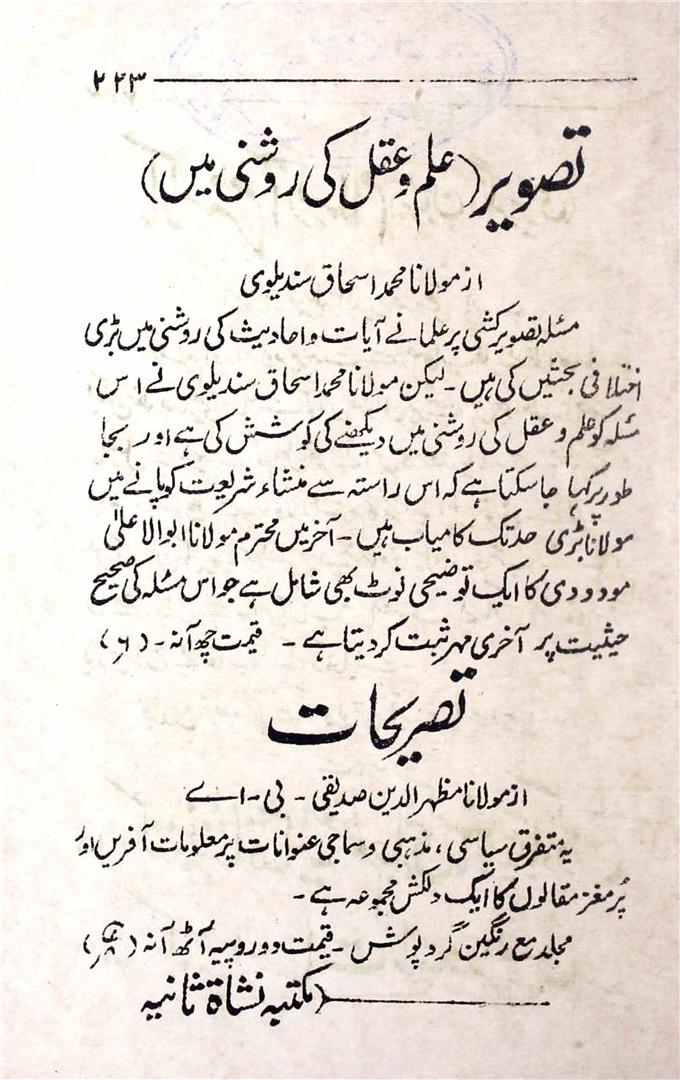 ۲۲۳
تصویر (علم و عقل کی روشنی میں)
از مولانا محمد اسحاق سندیلوی
مسئلہ تصویر کشی پر علما نے آیات و احادیث کی روشنی میں بڑی
اختلافی بحثیں کی ہیں ۔ لیکن مولانا محمد اسحاق سندیلوی نے اس
مسئلہ کو علم و عقل کی روشنی میں دیکھنے کی کوشش کی ہے اور بجا
طور پر کہا جا سکتا ہے کہ اس راستہ سے منشاء شریعت کو پانے میں
مولانا بڑی حد تک کامیاب ہیں ۔ آخر میں محترم مولانا ابوالاعلیٰ
مودودی کا ایک توضیحی نوٹ بھی شامل ہے جو اس مسئلہ کی صحیح
حیثیت پر آخری مہر ثبت کر دیتا ہے ۔ قیمت چھ آنہ ۔
تصریحات
از مولانا مظہر الدین صدیقی ۔ بی ۔ اے
یہ متفرق سیاسی ، مذہبی و سماجی عنوانات پر معلومات آفریں اور
پُر مغز مقالوں کا ایک دلکش مجموعہ ہے ۔
مجلد مع رنگین گرد پوش ۔ قیمت دو روپیہ آٹھ آنہ
مکتبہ نشاۃ ثانیہ